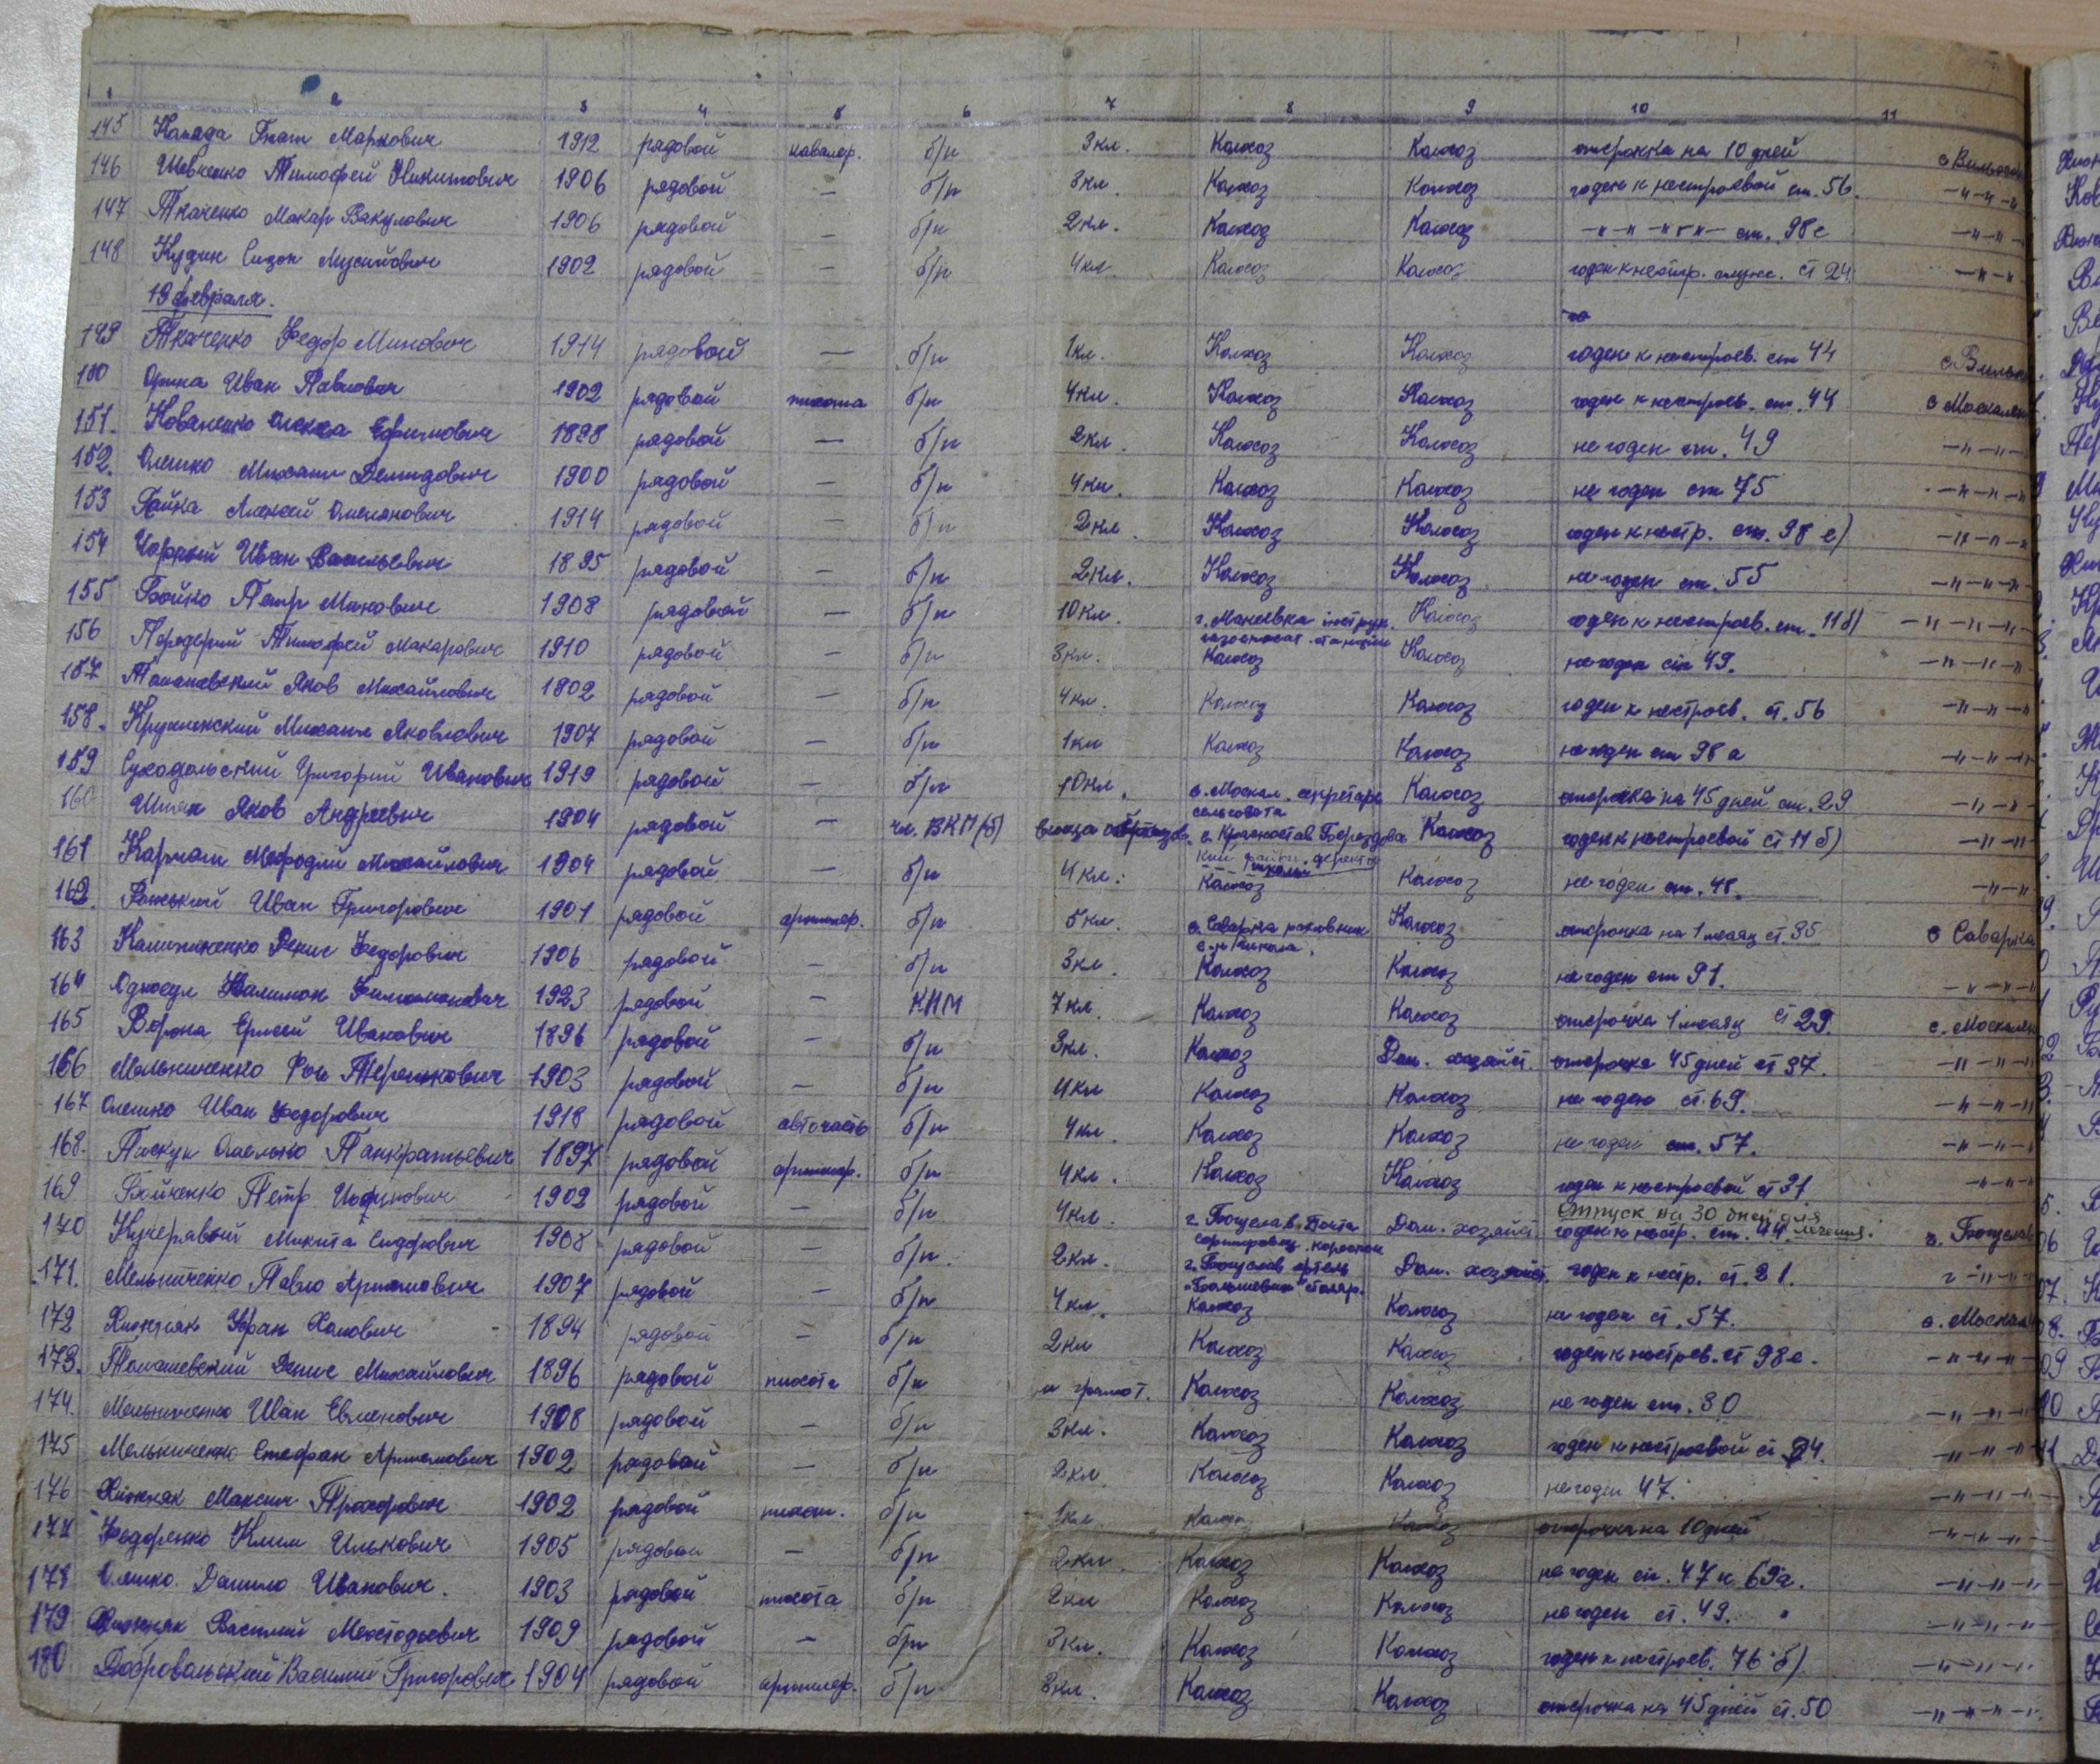 1 2 3 4 5 6 7 8 9 10 11
145 Канада Гнат Маркович 1912 рядовой кавалер. б/п 3кл. Колхоз Колхоз отсрочка на 10 дней
146 Шевченко Тимофей Никитович 1906 рядовой — б/п 3кл. Колхоз Колхоз годен к нестроевой ст. 56. -"-"-"
147 Ткаченко Макар Вакулович 1906 рядовой — б/п 2кл. Колхоз Колхоз -"-"-"-"- ст. 98е -"-"-
148 Кудин Сизон Мусийович 1902 рядовой — б/п 4кл. Колхоз Колхоз годен к нестр. ст 24 -"-"
19 февраля.
149 Ткаченко Федор Минович 1914 рядовой — б/п 1кл. Колхоз Колхоз годен к нестроев. ст 44
150 Иван Павлович 1902 рядовой пихота б/п 4кл. Колхоз Колхоз годен к нестроев. ст. 44 с Москален
151. Коваленко Олекса Ефимович 1898 рядовой — б/п 2кл. Колхоз Колхоз не годен ст. 49 -"-"-"-
152. Олешко Михаил Демидович 1900 рядовой — б/п 4кл. Колхоз Колхоз не годен ст 75 -"-"-"
153 Гайка Алексей Омелянович 1914 рядовой — б/п 2кл. Колхоз Колхоз годен к нестр. ст. 98 е) -"-"-"
154 Чорний Иван Васильевич 1895 рядовой — б/п 2кл. Колхоз Колхоз не годен ст. 55 -"-"-"
155 Бойко Петр Минович 1908 рядовой — б/п 10кл. г. Макеевка інструк. Колхоз годен к нестроев. ст. 11б) -"-"-"-"
газоспасат. станции
156 Передерий Тимофей Макарович 1910 рядовой — б/п 3кл. Колхоз Колхоз не годен ст 49. -"-"-"
157 Томашевский Яков Михайлович 1902 рядовой — б/п 4кл. Колхоз Колхоз годен к нестроев. ст. 56 -"-"-"
158. Михаил Яковлевич 1907 рядовой — б/п 1кл Колхоз Колхоз не годен ст 98 а -"-"-"
159 Суходольский Григорий Иванович 1919 рядовой — б/п 10кл. с. Москал. секретарь Колхоз отсрочка на 45 дней ст. 29 -"-"
сельсовета
160 Яков Андреевич 1904 рядовой — чл. ВКП(б) с. Красностав Берездовс Колхоз годен к нестроевой ст 11 б) -"-"
кий район. директор
школы
161 Мефодий Михайлович 1904 рядовой — б/п 4кл. Колхоз Колхоз не годен ст. 48. -"-"
162. Иван Григорович 1901 рядовой артилер. б/п 5кл. с. Саварка Колхоз отсрочка на 1 месяц ст. 35 с Саварка
школа.
163 Калиниченко Денис Федорович 1906 рядовой — б/п 3кл Колхоз Колхоз не годен ст 91. -"-"-"
164 Филимон Филимонович 1923 рядовой — КНМ 7кл. Колхоз Колхоз отсрочка 1 месяц ст 29. с. Москален
165 Ворона Ерисей Иванович 1896 рядовой — б/п 3кл. Колхоз Дом. хозяйст. отсрочка 45 дней ст 37. -"-"-"
166 Мельниченко Терешкович 1903 рядовой — б/п 4кл Колхоз Колхоз не годен ст. 69. -"-"-"
167 Олешко Иван Федорович 1918 рядовой авточасть б/п 4кл. Колхоз Колхоз не годен ст. 57. -"-"-"
168. Пискун Омелько Панкратьевич 1897 рядовой артилер. б/п 4кл. Колхоз Колхоз годен к нестроевой ст 31. -"-"
отпуск на 30 дней для
169 Бойченко Петр 1902 рядовой — б/п 4кл. г. Богуслав Почта Дом. хозяйст. годен к нестр. ст. 44. лечения. г. Богуслав
170 Кучерявый Микита Сидорович 1908 рядовой — б/п. 2кл. г. Богуслав артель Дом. хозяйст. годен к нестр. ст. 31. г -"-"
"Большевик" столяр.
171. Мельниченко Павло Артемович 1907 рядовой — б/п 4кл. Колхоз Колхоз не годен ст. 57. с. Москален
172 Хижняк 1894 рядовой — б/п 2кл Колхоз Колхоз годен к нестроев. ст 98е. -"-"-"
173. Томашевский Денис Михайлович 1896 рядовой пихота б/п н грамот. Колхоз Колхоз не годен ст. 30 -"-"-"
174. Мельниченко Иван Евменович 1908 рядовой — б/п 3кл. Колхоз Колхоз годен к нестроевой ст 4. -"-"-"
175 Мельниченко Стефан Артемович 1902 рядовой — б/п 2кл. Колхоз Колхоз не годен 47. -"-"-"
176 Хижняк Максим Прохорович 1902 рядовой пихот. б/п 1кл. Колхоз Колхоз отсрочка на 10 дней -"-"-"
177 Федоренко Клим Илькович 1905 рядовой — б/п 2кл. Колхоз Колхоз не годен ст. 47 и 69а. -"-"-"
178 Олешко Данило Иванович. 1903 рядовой пихота б/п 2кл Колхоз Колхоз не годен ст. 49. -"-"-"
179 Хижняк Василий Мефодьевич 1909 рядовой — б/п 3кл. Колхоз Колхоз годен к нестроев. 76 б) -"-"-"
180 Добровольський Василий Григорович 1904 рядовой артилер. б/п 3кл. Колхоз Колхоз отсрочка на 45 дней ст. 50 -"-"-"